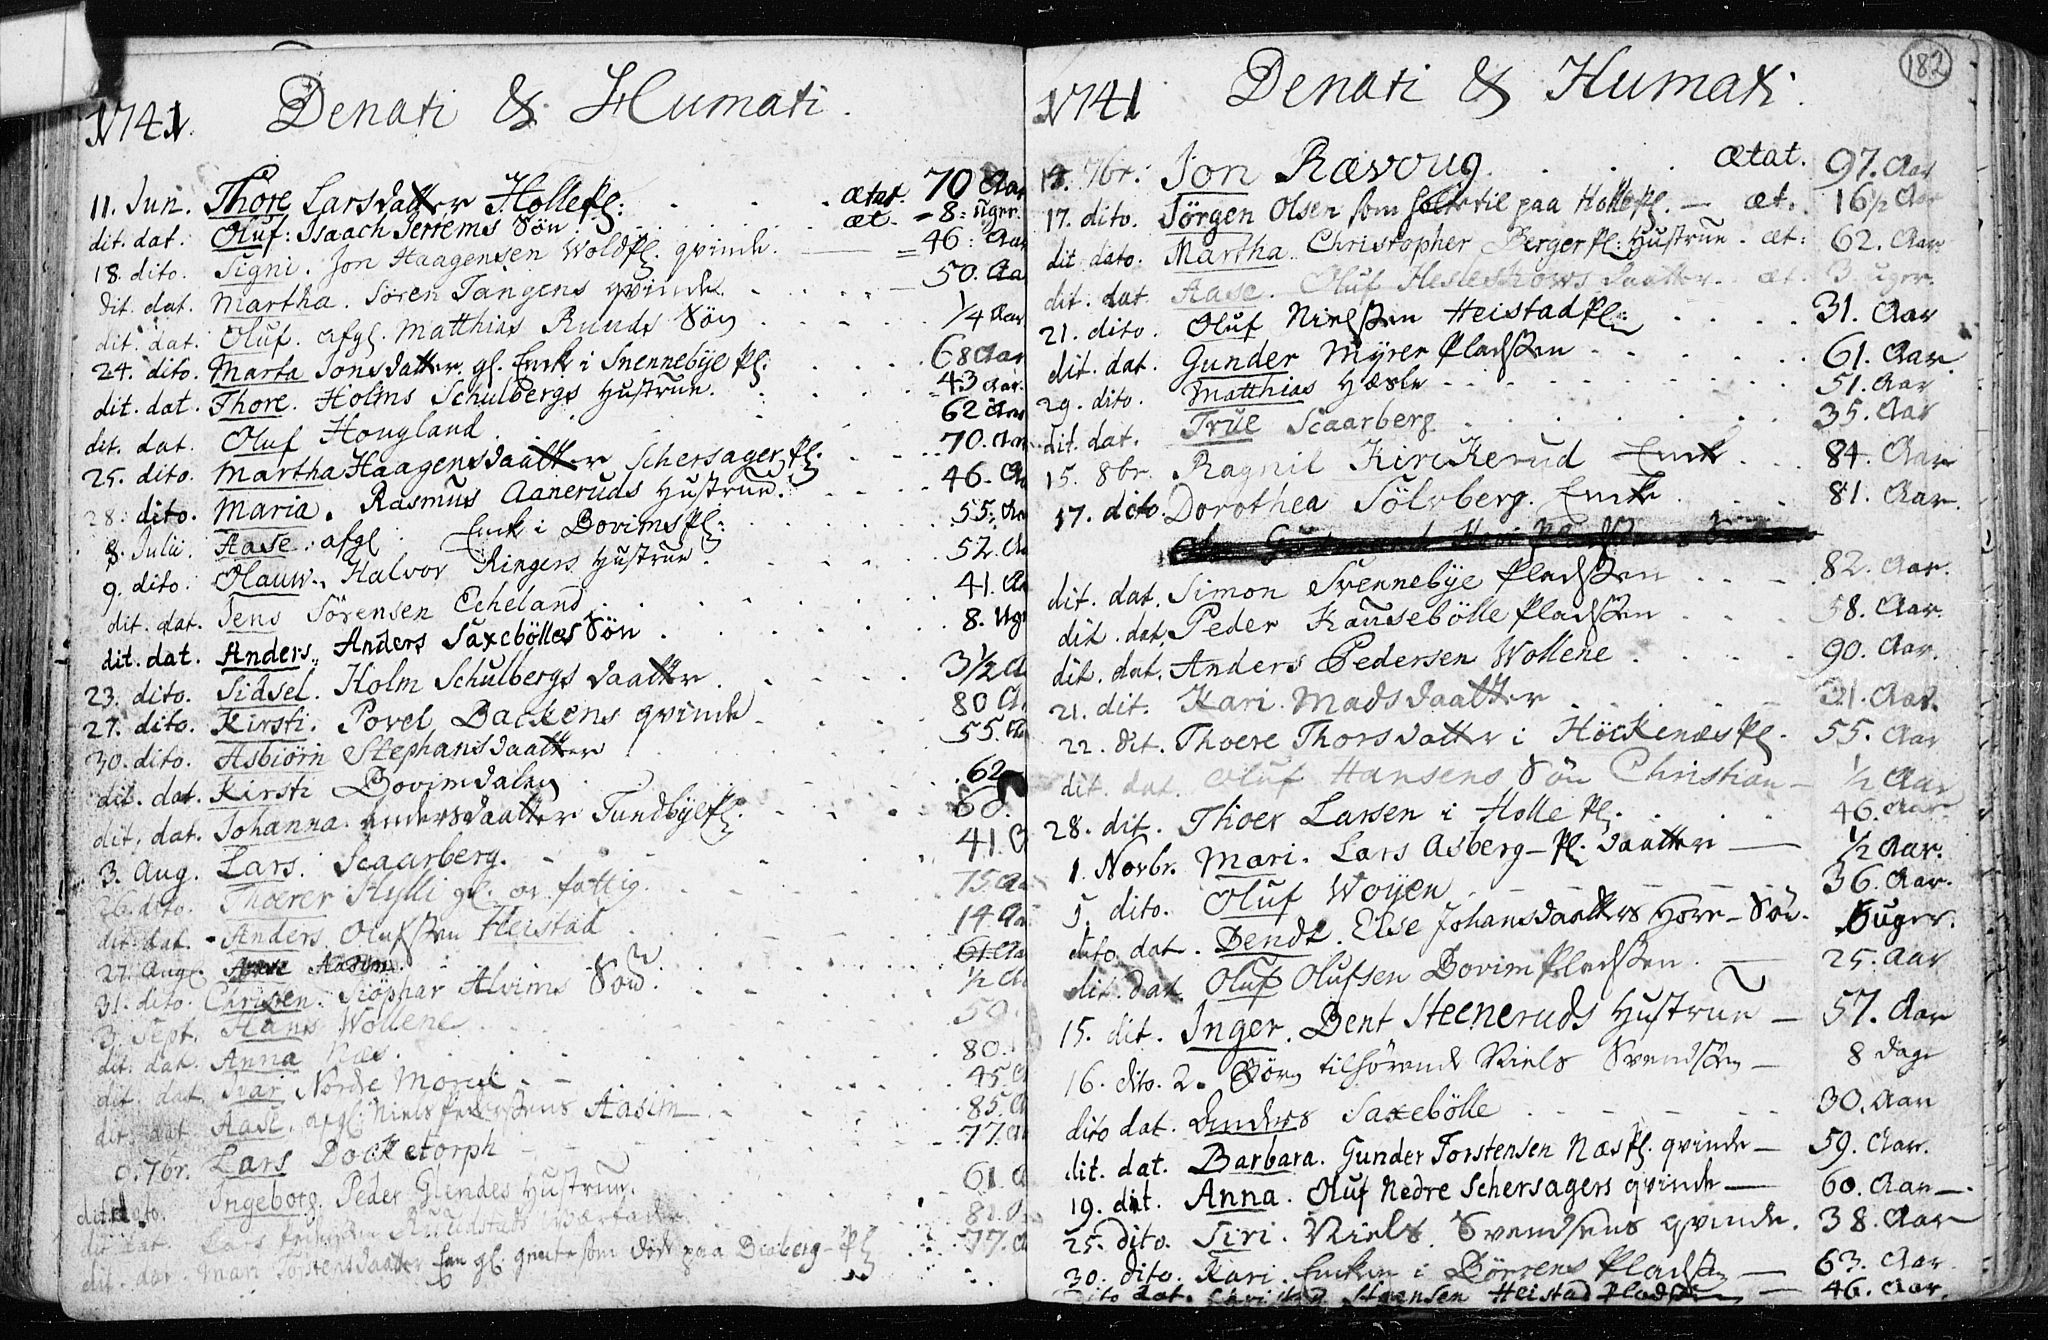 1741. Denati & Humati.
11. Jun. Thore Larsdatter Holle Pl: ætat. 70 Aar
dit. dat. Oluf: Isaach Serrems Sön. æt. - 8 = uger.
18. dito. Signi. Jon Haagensen Woldpl. qvinde. 46: Aar
dit. dat. Martha. Sören Tangens qvinde. 50. Aar
dit. dat. Oluf. afgl. Matthias Ruuds Sön 1/4 Aar
24. dito. Marta Jonsdatter. gl. Enck i Snennebÿe Pl: 68 Aar
dit. dat. Thore. Holms Schulbergs Hustrue. 43 Aar.
dit. dat. Oluf Hougland 62 Aar
25. dito. Martha Haagensdaatter Schersager Pl. 70. Aar
28. dito. Maria. Rasmus Aaneruds Hustrue. 46. Aar
8. Julii. Aase. afgl. Enck i Bovims Pl: 55. Aar
9. dito. Olauw. Halvor Ringers Hustrue. 52. Aar
dit. dat. Jens Sörensen Echeland 41. Aa
dit. dat. Anders. Anders Saxebölles Sön 8. Ugr
23. dito. Sidsel. Holm Schulbergs daatter 3 1/2 A
27. dito. Kirsti. Povel Backens qvinde 80 A
30. dito. Asbiörn Stephansdaatter 55.
dit. dat. Kirsti Bovimdalen 62
dit. dat. Johanna andersdaatter Tundbÿe Pl.
3. Aug. Lars. Scaarberg. 41.
26. dito. Thorer Hylli gl. og fattig. 75. Aa
dit. dat. Anders Olufssen Heistad 14 Aa
27. Aug. Aasim. 61 Aa
31. dito. Christen. Siöphar Alvims Sön. 1/2 A
3. Sept. Hans Wollene 50.
dit. dat. Anna Næs. 80.
dit. dat. Kari Nordre Moreth 45.
dit. dat. Aase. afgl. Niels Pederssens Aasim 85.
7br. Lars Docketorph 77.
dito. Ingeborg. Peder Glendes Hustrue. 61.
dit. dat. Lars 81.
dit. dat. Mari Torstensdaatter En gl. som döde paa Biaberg-Pl 77.
182
1741 Denati & Humati.
14. 7br. Jon Rævoug. ætat. 97. Aar
17. dito. Jörgen Olsen som holt til paa Holle Pl. — æt. 16 1/2 Aar
dit. dato. Martha Christopher Berger Pl: Hustrue. æt: 62. Aar
dit. dat. Aase. Oluf daatter. æt. 3 uger.
21. dito. Oluf Nielssen Heistad Pl: 31. Aar
dit. dat. Gunder Mÿrer Pladssen 61. Aar
29. dito. Matthias Hæsle 51. Aar
dit. dat. True Scaarberg 35. Aar
15. 8br. Ragnil Kirckerud Enck 84. Aar
17. dito. Dorothea Sölvberg. Encke 81. Aar.
dit. dat. Simon Svennebÿe Pladssen 82. Aar.
dit. dat. Peder Kausebölle Pladssen 58. Aar.
dit. dat. Anders Pedersen Wollene 90. Aar.
21. dit. Kari Madsdaatter 21. Aar.
22. dit. Thoere Thorsdatter i Höckenæs Pl. 55. Aar
dit. dat. Oluf Hansens Sön Christian — 1/2 Aar
28. dit. Thoer Larsen i Holle Pl. 46. Aar
1. Novbr. Mari. Lars Asberg-Pl. daatter — 1/2 Aar.
5. dito. Oluf Woÿen 36. Aar.
dito dat. Bendt. Else Johansdaatters Hore-Sön. 6 uger.
dit. dat. Oluf Olufsen Bovim Pladssen. — 25. Aar
15. dit. Inger. Bent Steeneruds Hustrue — 57. Aar
16. dito. 2. Börn tilhörende Niels Svendssen — 8 dage
dito dat. Anders Saxebölle 30. Aar
dit. dat. Barbara. Gunder Torstensen Næs Pl. qvinde — 59. Aar.
19. dit. Anna. Oluf Nedre Schersagers qvinde — 60. Aar —.
25. dito. Siri. Niels Svendsens qvinde. 38. Aar
30. dito. Kari. Encken i Börrens Pladssen — 63. Aar
dito dat. Steensen Heistad Pladssen — 46. Aar.